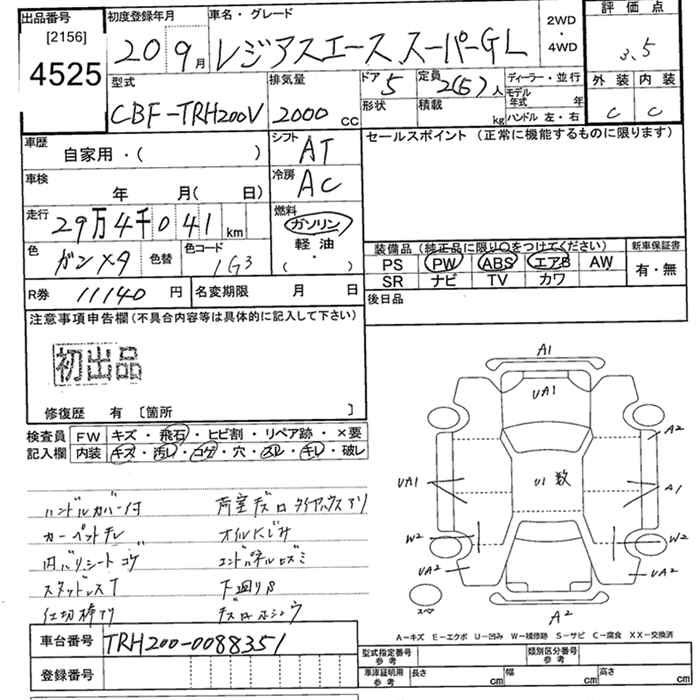 出品番号 初度登録年月 車名・グレード 2WD・4WD 評価点
[2156]
4525 20 9月 レジアスエース スーパーGL 3.5
型式 排気量 ドア 5 定員 2(5)人 ディーラー・並行 外装 内装
CBF-TRH200V 2000cc 形状 積載 kg モデル年式 年 C C
ハンドル 左・右
車歴 シフト セールスポイント (正常に機能するものに限ります)
自家用・( ) AT
車検 冷房
年 月( 日) AC
走行 燃料
29万4千041km ガソリン
軽油
・
( )
色 色替 色コード 装備品 (純正品に限り○をつけてください) 新車保証書
ガンメタ 1G3 PS PW ABS エアB AW 有・無
SR ナビ TV カワ
R券 11140円 名変期限 月 日 後日品
注意事項申告欄(不具合内容等は具体的に記入して下さい)
初出品
修復歴 有 〔箇所 〕
検査員 FW キズ・飛石・ヒビ割・リペア跡・×要
記入欄 内装 キズ・汚レ・コゲ・穴・スレ・キレ・破レ
ハンドルカバー付 荷室キズ
カーペットキレ オイルにじみ
内バリシートコゲ エンドパネルヒズミ
スタッドレスT 下回りS
仕切棒アリ
A1
UA1
A2
UA1 U1 数 A1
W2 W2
UA2 UA2
スペア A2
A-キズ E-エクボ U-凹み W-補修跡 S-サビ C-腐食 XX-交換済
車台番号 TRH200-0088351 型式指定番号 参考 類別区分番号 参考
登録番号 車庫証明用 参考 長さ cm 幅 cm 高さ cm